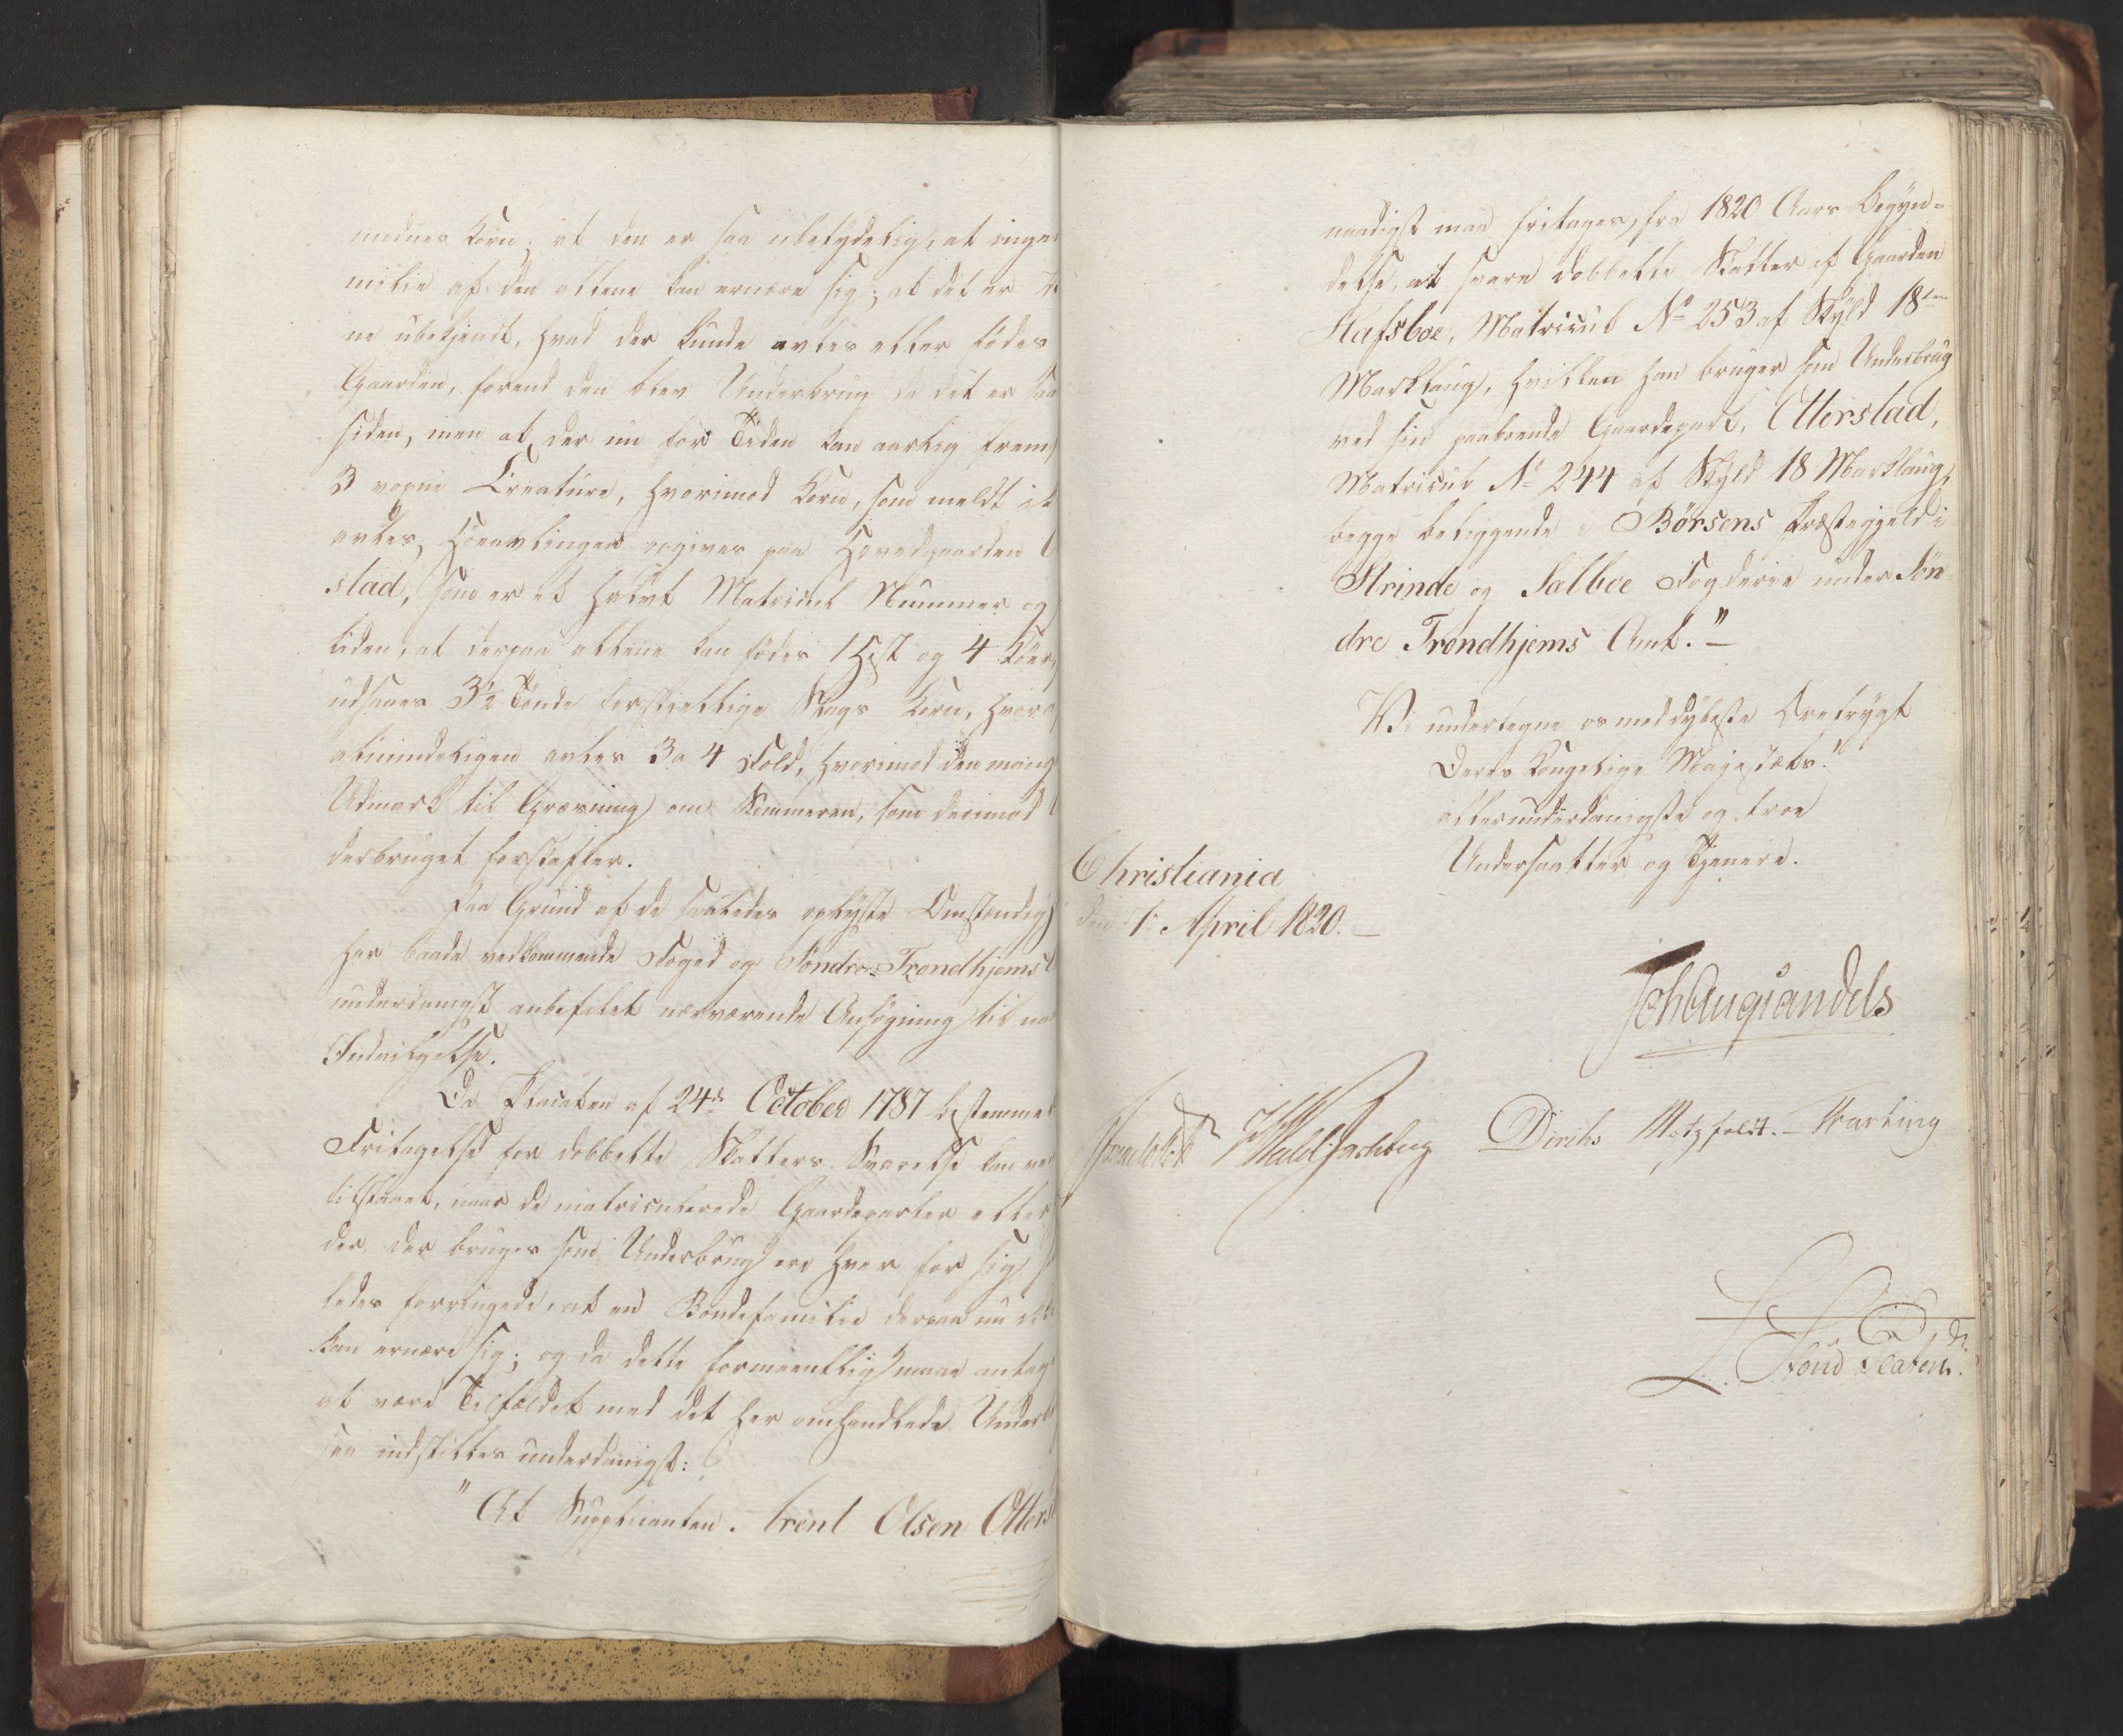 modnes Korn; at den er saa ubetydelig, at inge
milie af den allene kan ernære sig; at det er
ne ubekjendt, hvad der kunde avles eller födes
Gaarden, forend den blev Underbrug da det er saa
siden, men at der nu for Tiden kan aarlig frem
3 voxne Creature, hvorimod Korn, som meldt ik
avles; Höeavlingen opgives paa Hovedgaarden
stad, som er et halvt Matricul Nummer og
liden, at derpaa allene kan födes 1 Hest og 4 Köer,
udsaaes 3½ Tönde forskjellige Slags Korn, hvora
almindeligen avles 3 a 4 Fold, hvorimod den mang
Udmark til Græsning om Sommeren, som derimod
derbruget forskaffer.
Paa Grund af de saaledes oplyste Omstændig
har baade vedkommende Foged og Söndre Trondhjems
underdanigst anbefalet nærværende Ansögning til na
Indvilgelse.
Da Placaten af 24de October 1787 bestemme
Fritagelse for dobbelte Skatters Svarelse kan
tilstaaet, naar de matriculerede Gaardeparter eller
der, der bruges som Underbrug ere hver for sig
ledes forringede, at en Bondefamilie derpaa nu ik
kan ernære sig; og da dette formeentlig maae antag
at være Tilfældet med det her omhandlede Under
saa indstilles underdanigst:
"At Supplicanten, Arent Olsen Otters
naadigst maa fritages, fra 1820 Aars Begyn-
delse, at svare dobbelte Skatter af Gaarden
Hafsboe, Matricul No 253 af Skyld 18
Marklaug, hvilken han bruger som Underbrug
ved sin paaboende Gaardepart, Otterstad,
Matricul No 244 af Skyld 18 Marklaug,
begge beliggende i Börsens Præstegjeld i
Strinde og Sælboe Fogderie under Sön
dre Trondhjems Amt."
Vi undertegne os med dybeste Ærefrygt
Deres Kongelige Majestæts!
allerunderdanigste og troe
Undersaatter og Tjenere.
Christiania
den 1 April 1820.
Joh Aug Sandels
Diriks Motzfeldt. Krarting